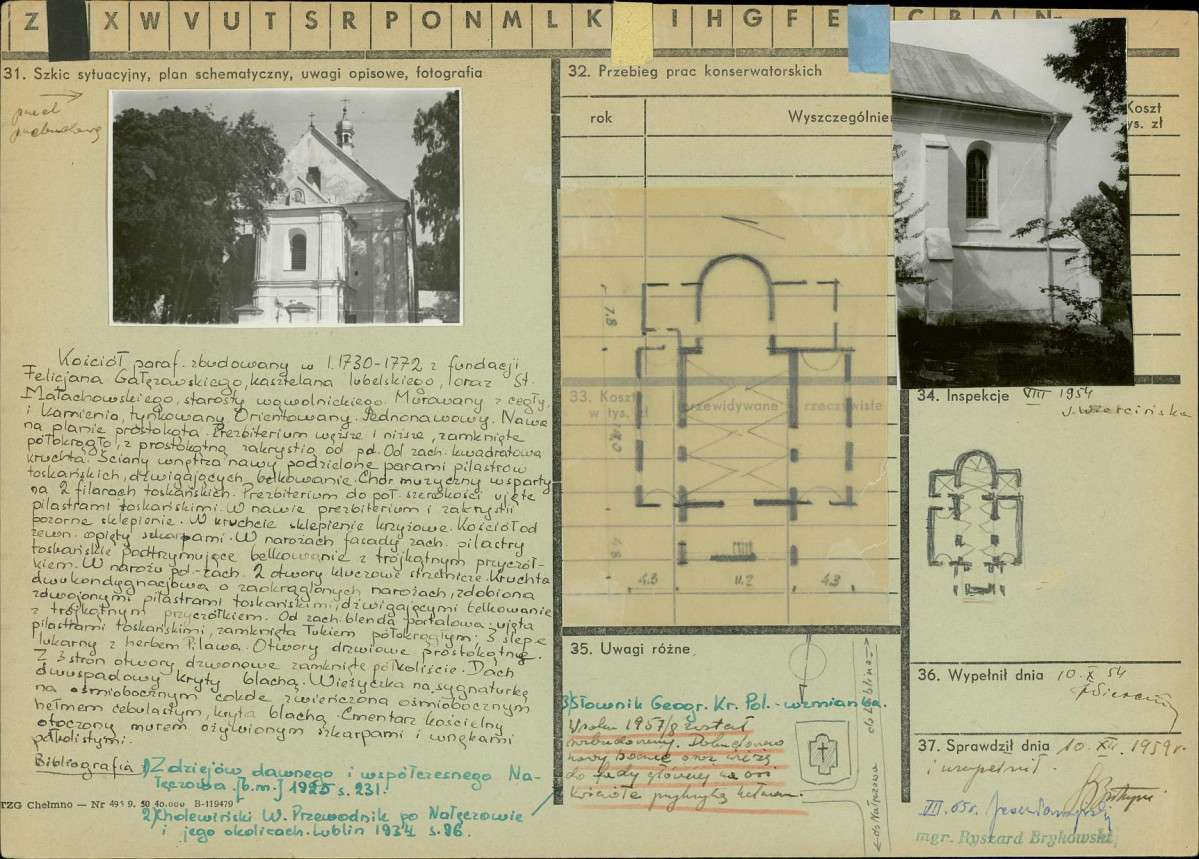 Z X W V U T S R P O N M L K I H G F E C B A Nr
31. Szkic sytuacyjny, plan schematyczny, uwagi opisowe, fotografia
przed
przebudową
Kościół paraf. zbudowany w l. 1730-1772 z fundacji
Felicjana Gałęzowskiego, kasztelana lubelskiego, oraz St.
Małachowskiego, starosty wąwolnickiego. Murowany z cegły
i kamienia, tynkowany. Orientowany. Jednonawowy. Nawa
na planie prostokąta. Prezbiterium węższe i niższe, zamknięte
półkrągło, z prostokątną zakrystią od pd. Od zach. kwadratowa
kruchta. Ściany wnętrza nawy podzielone parami pilastrów
toskańskich, dźwigających belkowanie. Chór muzyczny wsparty
na 2 filarach toskańskich. Prezbiterium do poł. szerokości ujęte
pilastrami toskańskimi. W nawie prezbiterium i zakrystii
pozorne sklepienie. W kruchcie sklepienie krzyżowe. Kościół od
zewn. opięty szkarpami. W narożach fasady zach. pilastry
toskańskie podtrzymujące belkowanie z trójkątnym przyczół-
kiem. W narożu pd.-zach. 2 otwory kluczowe strzelnicze. Kruchta
dwukondygnacjowa o zaokrąglonych narożach, zdobiona
zdwojonymi pilastrami toskańskimi, dźwigającymi belkowanie
z trójkątnym przyczółkiem. Od zach. blenda portalowa ujęta
pilastrami toskańskimi, zamknięta łukiem półokrągłym. 3 ślepe
lukarny z herbem Pilawa. Otwory drzwiowe prostokątne.
Z 3 stron otwory dzwonowe zamknięte półkoliście. Dach
dwuspadowy kryty blachą. Wieżyczka na sygnaturkę
na ośmiobocznym cokole zwieńczona ośmiobocznym
hełmem cebulastym, kryta blachą. Cmentarz kościelny
otoczony murem ożywionym szkarpami i wnękami
półkolistymi.
Bibliografia 1) Z dziejów dawnego i współczesnego Na-
łęczowa. [b.m.] 1925 s. 231.
2) Cholewiński W. Przewodnik po Nałęczowie
i jego okolicach. Lublin 1934 s. 96.
TZG Chełmno — Nr 495 9. 50 40.000 B-119479
32. Przebieg prac konserwatorskich
rok
Wyszczególnie
Koszt
ys. zł
33. Koszt
w tys. zł
przewidywane
rzeczywiste
7.8
4.8
4.3
11.2
4.3
34. Inspekcje VIII 1954
35. Uwagi różne
3) Słownik Geogr. Kr. Pol. - wzmianka.
W roku 1957/8 został
rozbudowany. Dobudowano
nawy boczne oraz wieżę
do fasady głównej na osi
kościoła przykrytą hełmem.
do Lublina
do Nałęczowa
36. Wypełnił dnia 10. X 54
37. Sprawdził dnia 10. XII. 1959 r.
i uzupełnił
VII. 65 r.
mgr. Ryszard Brykowski